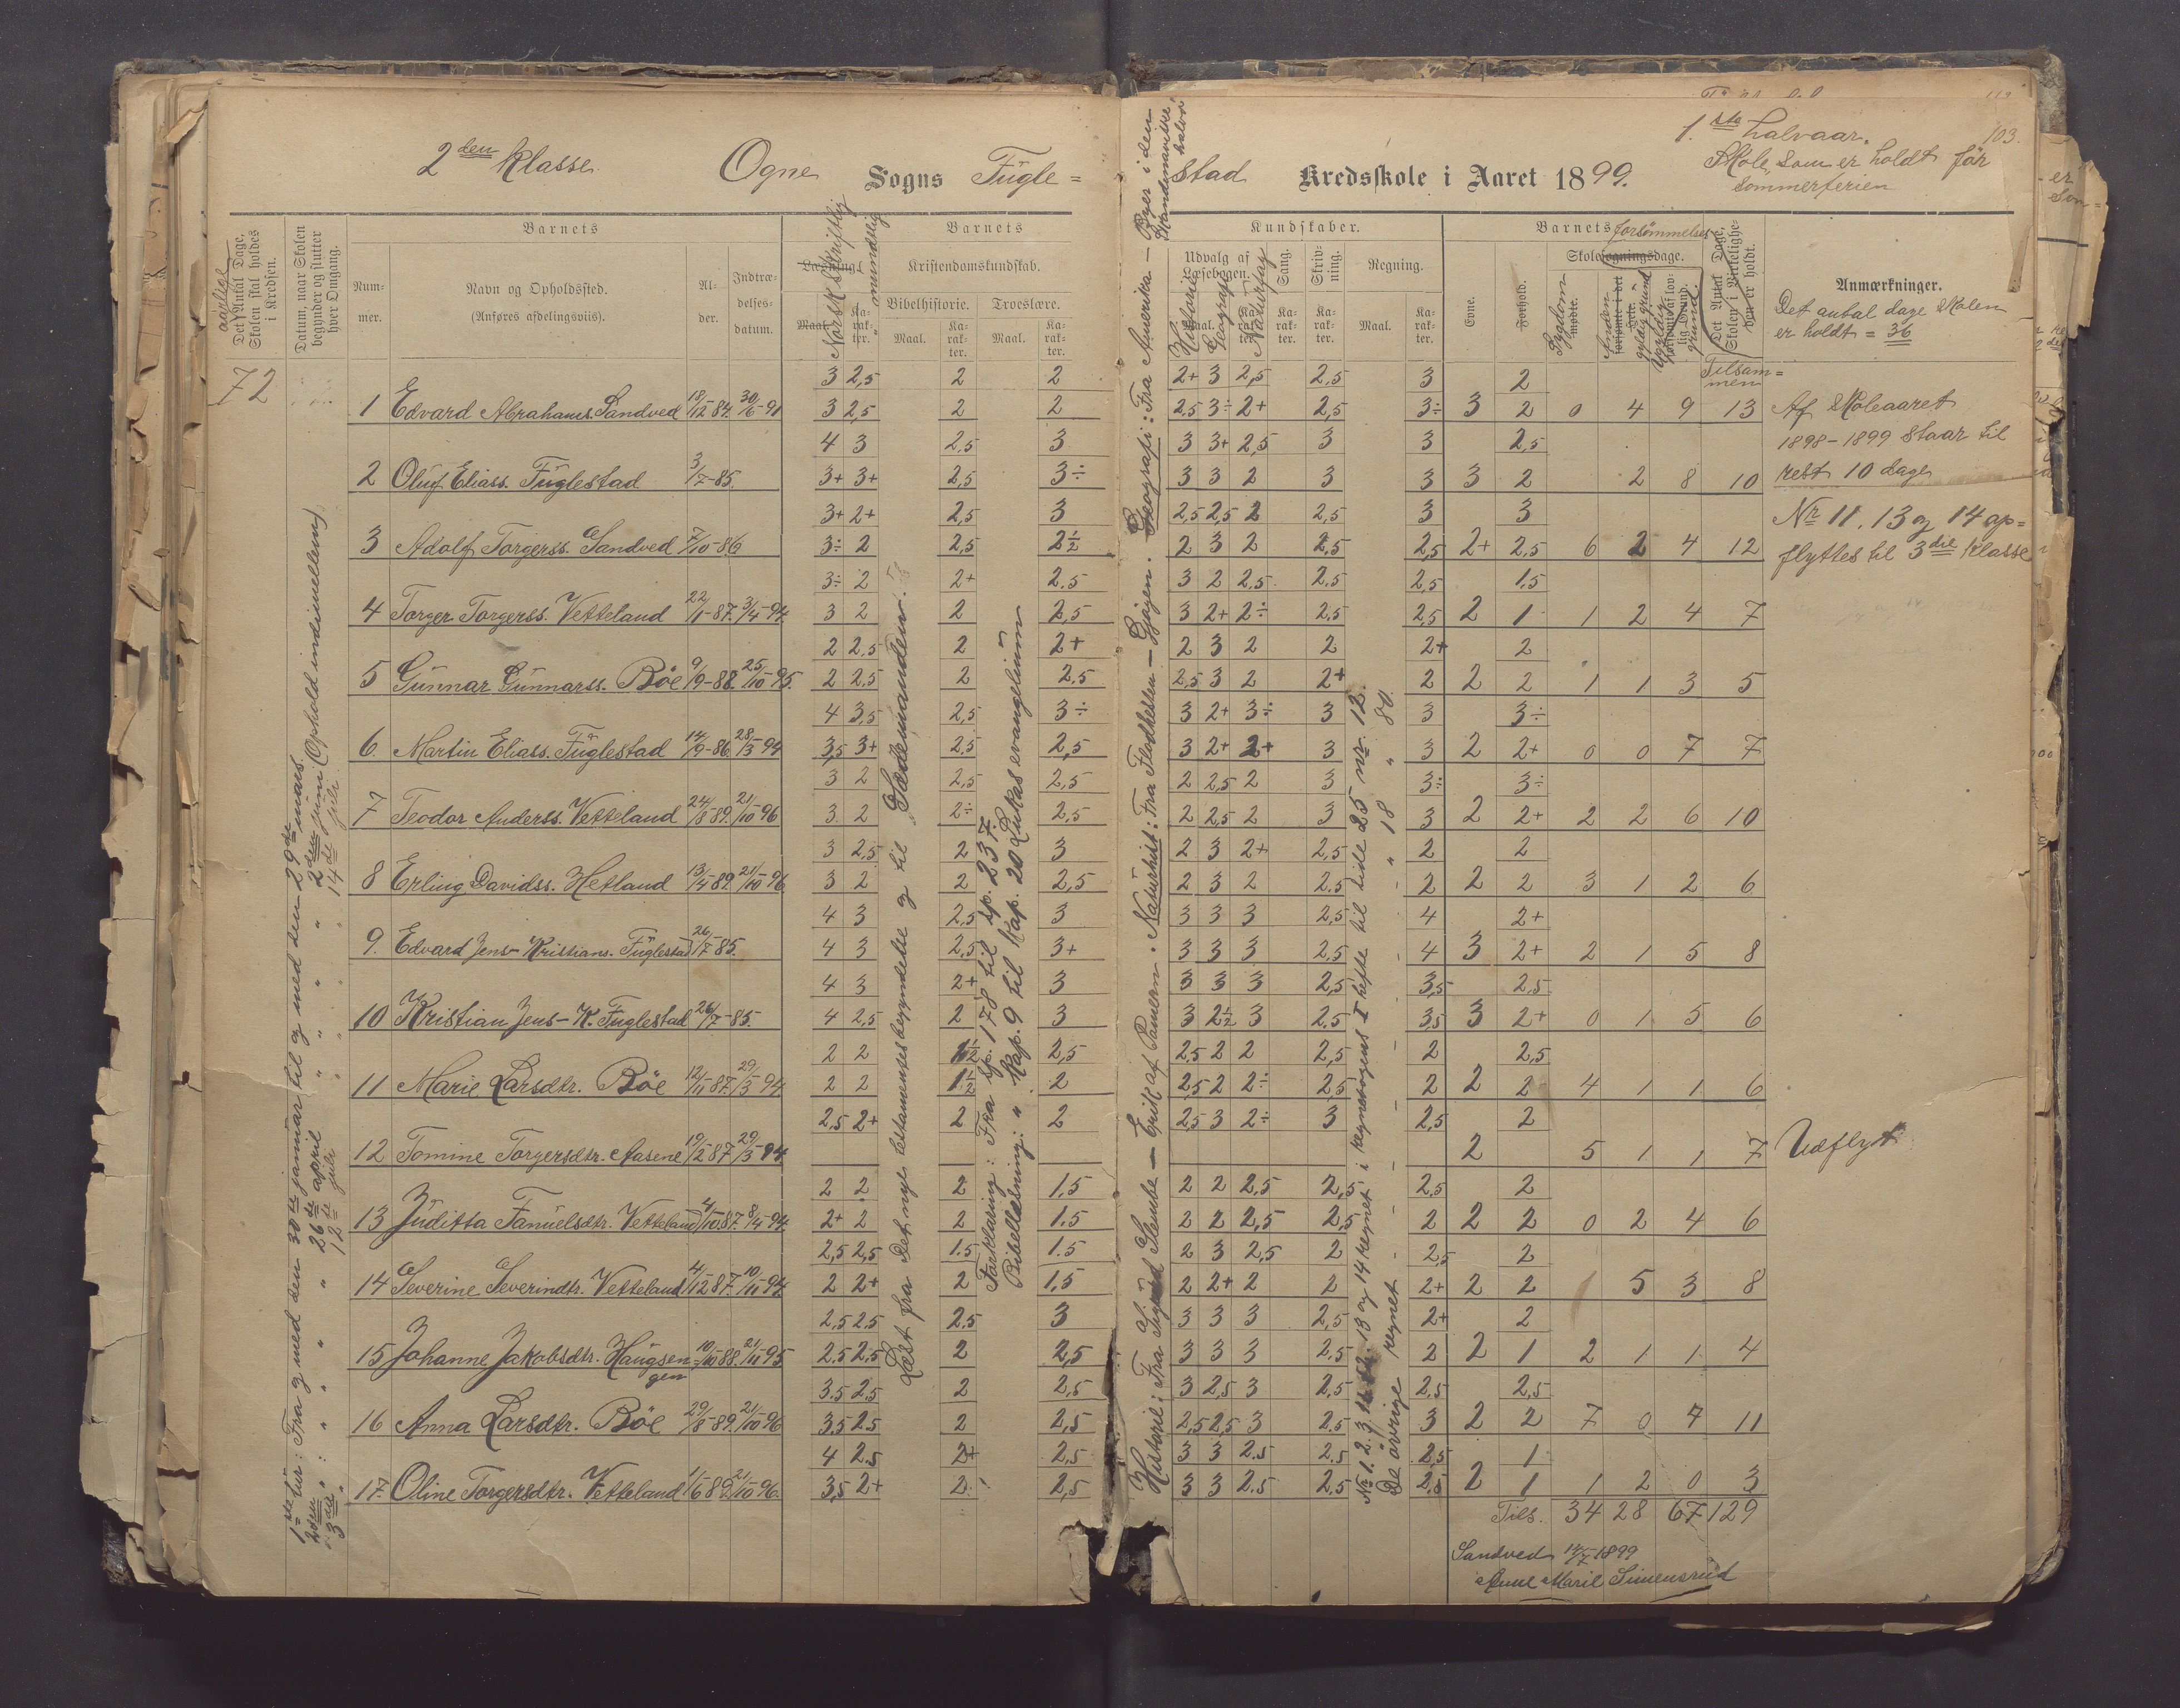 2den Klasse
Ogne Sogns Fugle=
stad Kredsskole i Aaret 1899.
1.ste halvaar.
103.
Skole, som er holdt før
sommerferien
aarlige
Det Antal Dage,
Skolen skal holdes
i Kredsen.
Datum, naar Skolen
begynder og slutter
hver Omgang.
Barnets
Num-
mer.
Navn og Opholdssted.
(Anføres afdelingsviis).
Al-
der.
Indtræ-
delses-
datum.
Barnets
Læsning.
Norsk skriftlig
" mundtlig
Maal.
Ka-
rak-
ter.
Kristendomskundskab.
Bibelhistorie.
Troeslære.
Maal.
Ka-
rak-
ter.
Maal.
Ka-
rak-
ter.
Kundskaber.
Udvalg af
Læsebogen.
Historie
Geografi
Naturfag
Sang.
Skriv-
ning.
Regning.
Ka-
rak-
ter.
Ka-
rak-
ter.
Maal.
Ka-
rak-
ter.
Barnets forsømmelser
Evne.
Forhold.
Skolesøgningsdage.
Sygdom
mødte.
Anden
gyldig grund
Ugyldig
grund.
Det Antal Dage,
Skolen i Virkelighe-
den er holdt.
Tilsam=
men
Anmærkninger.
Det antal dage Skolen
er holdt = 36
72
3 2,5 2 2 2+ 3 2,5 2,5 3 2
1 Edvard Abrahams. Sandved 18/12-84. 30/6-91 3 2,5 2 2 2,5 3÷ 2+ 2,5 3÷ 3 2 0 4 9 13
Af Skoleaaret
4 3 2,5 3 3 3+ 2,5 3 3 2,5
1898-1899 staar til
2 Oluf Eliass. Fuglestad 3/7-85. 3+ 3+ 2,5 3÷ 3 3 2 3 3 3 2 2 8 10
rest 10 dage
3+ 2+ 2,5 3 2,5 2,5 2 2,5 3 3
Nr 11, 13 og 14 op=
3 Adolf Torgerss. Sandved 7/10-86 3÷ 2 2,5 2½ 2 3 2 2,5 2,5 2+ 2,5 6 2 4 12
flyttes til 3die Klasse
3÷ 2 2+ 2.5 3 2 2,5 2.5 2,5 1.5
4 Torger Torgerss. Vetteland 22/1-87. 3/4-94. 3 2 2 2,5 3 2+ 2÷ 2,5 2,5 2 1 1 2 4 7
2 2,5 2 2+ 2 3 2 2 2+ 2
5 Gunnar Gunnarss. Böe 9/9-88. 25/10-95. 2 2,5 2 2.5 2,5 3 2 2+ 2 2 2 1 1 3 5
4 3,5 2,5 3÷ 3 2+ 3÷ 3 3 3÷
6 Martin Eliass. Fuglestad 14/9-86 28/3-94 3,5 3+ 2,5 2,5 3 2+ 2+ 3 3 2 2+ 0 0 7 7
3 2 2,5 2,5 2 2,5 2 3 3÷ 3÷
7 Teodor Anderss. Vetteland 24/8-89. 21/10-96 3 2 2÷ 2,5 2 2,5 2 3 3 2 2+ 2 2 6 10
3 2,5 2 3 2 3 2+ 2,5 2 2
8 Erling Davidss. Hetland 13/4-89. 21/10-96 3 2 2 2,5 2 3 2 2,5 2 2 2 3 1 2 6
4 3 2,5 3 3 3 3 2,5 4 2+
9. Edvard Jens-Kristians. Fuglestad 26/7-85. 4 3 2,5 3+ 3 3 3 2,5 4 3 2+ 2 1 5 8
4 3 2+ 3 3 3 3 2,5 3,5 2,5
10 Kristian Jens-K. Fuglestad 26/7-85. 4 2,5 2 3 3 2½ 3 2,5 3,5 3 2+ 0 1 5 6
2 2 1½ 2,5 2,5 2 2 2,5 2 2,5
11 Marie Larsdtr. Böe 12/11-87. 29/3-94. 2 2 1½ 2 2,5 2 2÷ 2,5 2 2 2 4 1 1 6
2,5 2+ 2 2 2,5 3 2÷ 3 2,5 2
12 Tomine Torgersdtr. Aasene 19/2-87 29/3-94. 2 5 1 1 7 Udflyt
2 2 2 1.5 2 2 2,5 2,5 2,5 2
13 Juditta Fanuelsdtr. Vetteland 4/10-87. 8/4-94. 2+ 2 2 1.5 2 2 2,5 2,5 2 2 2 0 2 4 6
2,5 2,5 1.5 1.5 2 3 2,5 2 2,5 2
14 Severine Severindtr. Vetteland 4/12-87. 10/11-94. 2 2+ 2 1,5 2 2+ 2 2 2+ 2 2 5 3 8
2,5 2,5 2,5 3 3 3 3 2,5 2+ 2
15 Johanne Jakobsdtr. Haugsen= 10/10-88. 21/11-95 2,5 2,5 2 2,5 3 3 3 2,5 2 2 1 2 1 1 4
gen
3.5 2.5 2 2,5 3 2,5 3 2,5 2,5 2,5
16 Anna Larsdtr. Böe 29/8-89. 21/10-96 3.5 2.5 2 2,5 2,5 2,5 3 2.5 3 2 2 7 0 4 11
4 2.5 2+ 2,5 3 3 2.5 2.5 2,5 1
17. Oline Torgersdtr. Vetteland 1/6-89. 21/10-96. 3,5 2+ 2 2,5 3 3 2.5 2,5 2,5 2 1 1 2 0 3
Tils. 34 28 67 129
Sandved 14/7-1899
Anne Marie Simensrud
1ste tur: Fra og med den 30te januar til og med den 29de mars.
2den " : " " " 26de april " " " " 2den juni (Ophold indimellem)
3die " : " " " 12te juli " " " " 14de juli.
Læst fra Det nye testamentes begyndelse og til "Sædemanden".
Forklaring: Fra sp. 178 til sp. 237.
Bibellæsning: " Kap. 9 til Kap. 20 Lukas evangelium
Historie: Fra Sigurd Slembe — Erik af Pomern. Naturhist: Fra Flodhesten — Gjøgen. Geografi: Fra Amerika — Byer i den
Skandinaviske halvø
13 og 14 regnet i Regnebogens I hefte til side 25 nr. 12.
De øvrige regnet " " 18 " 80.